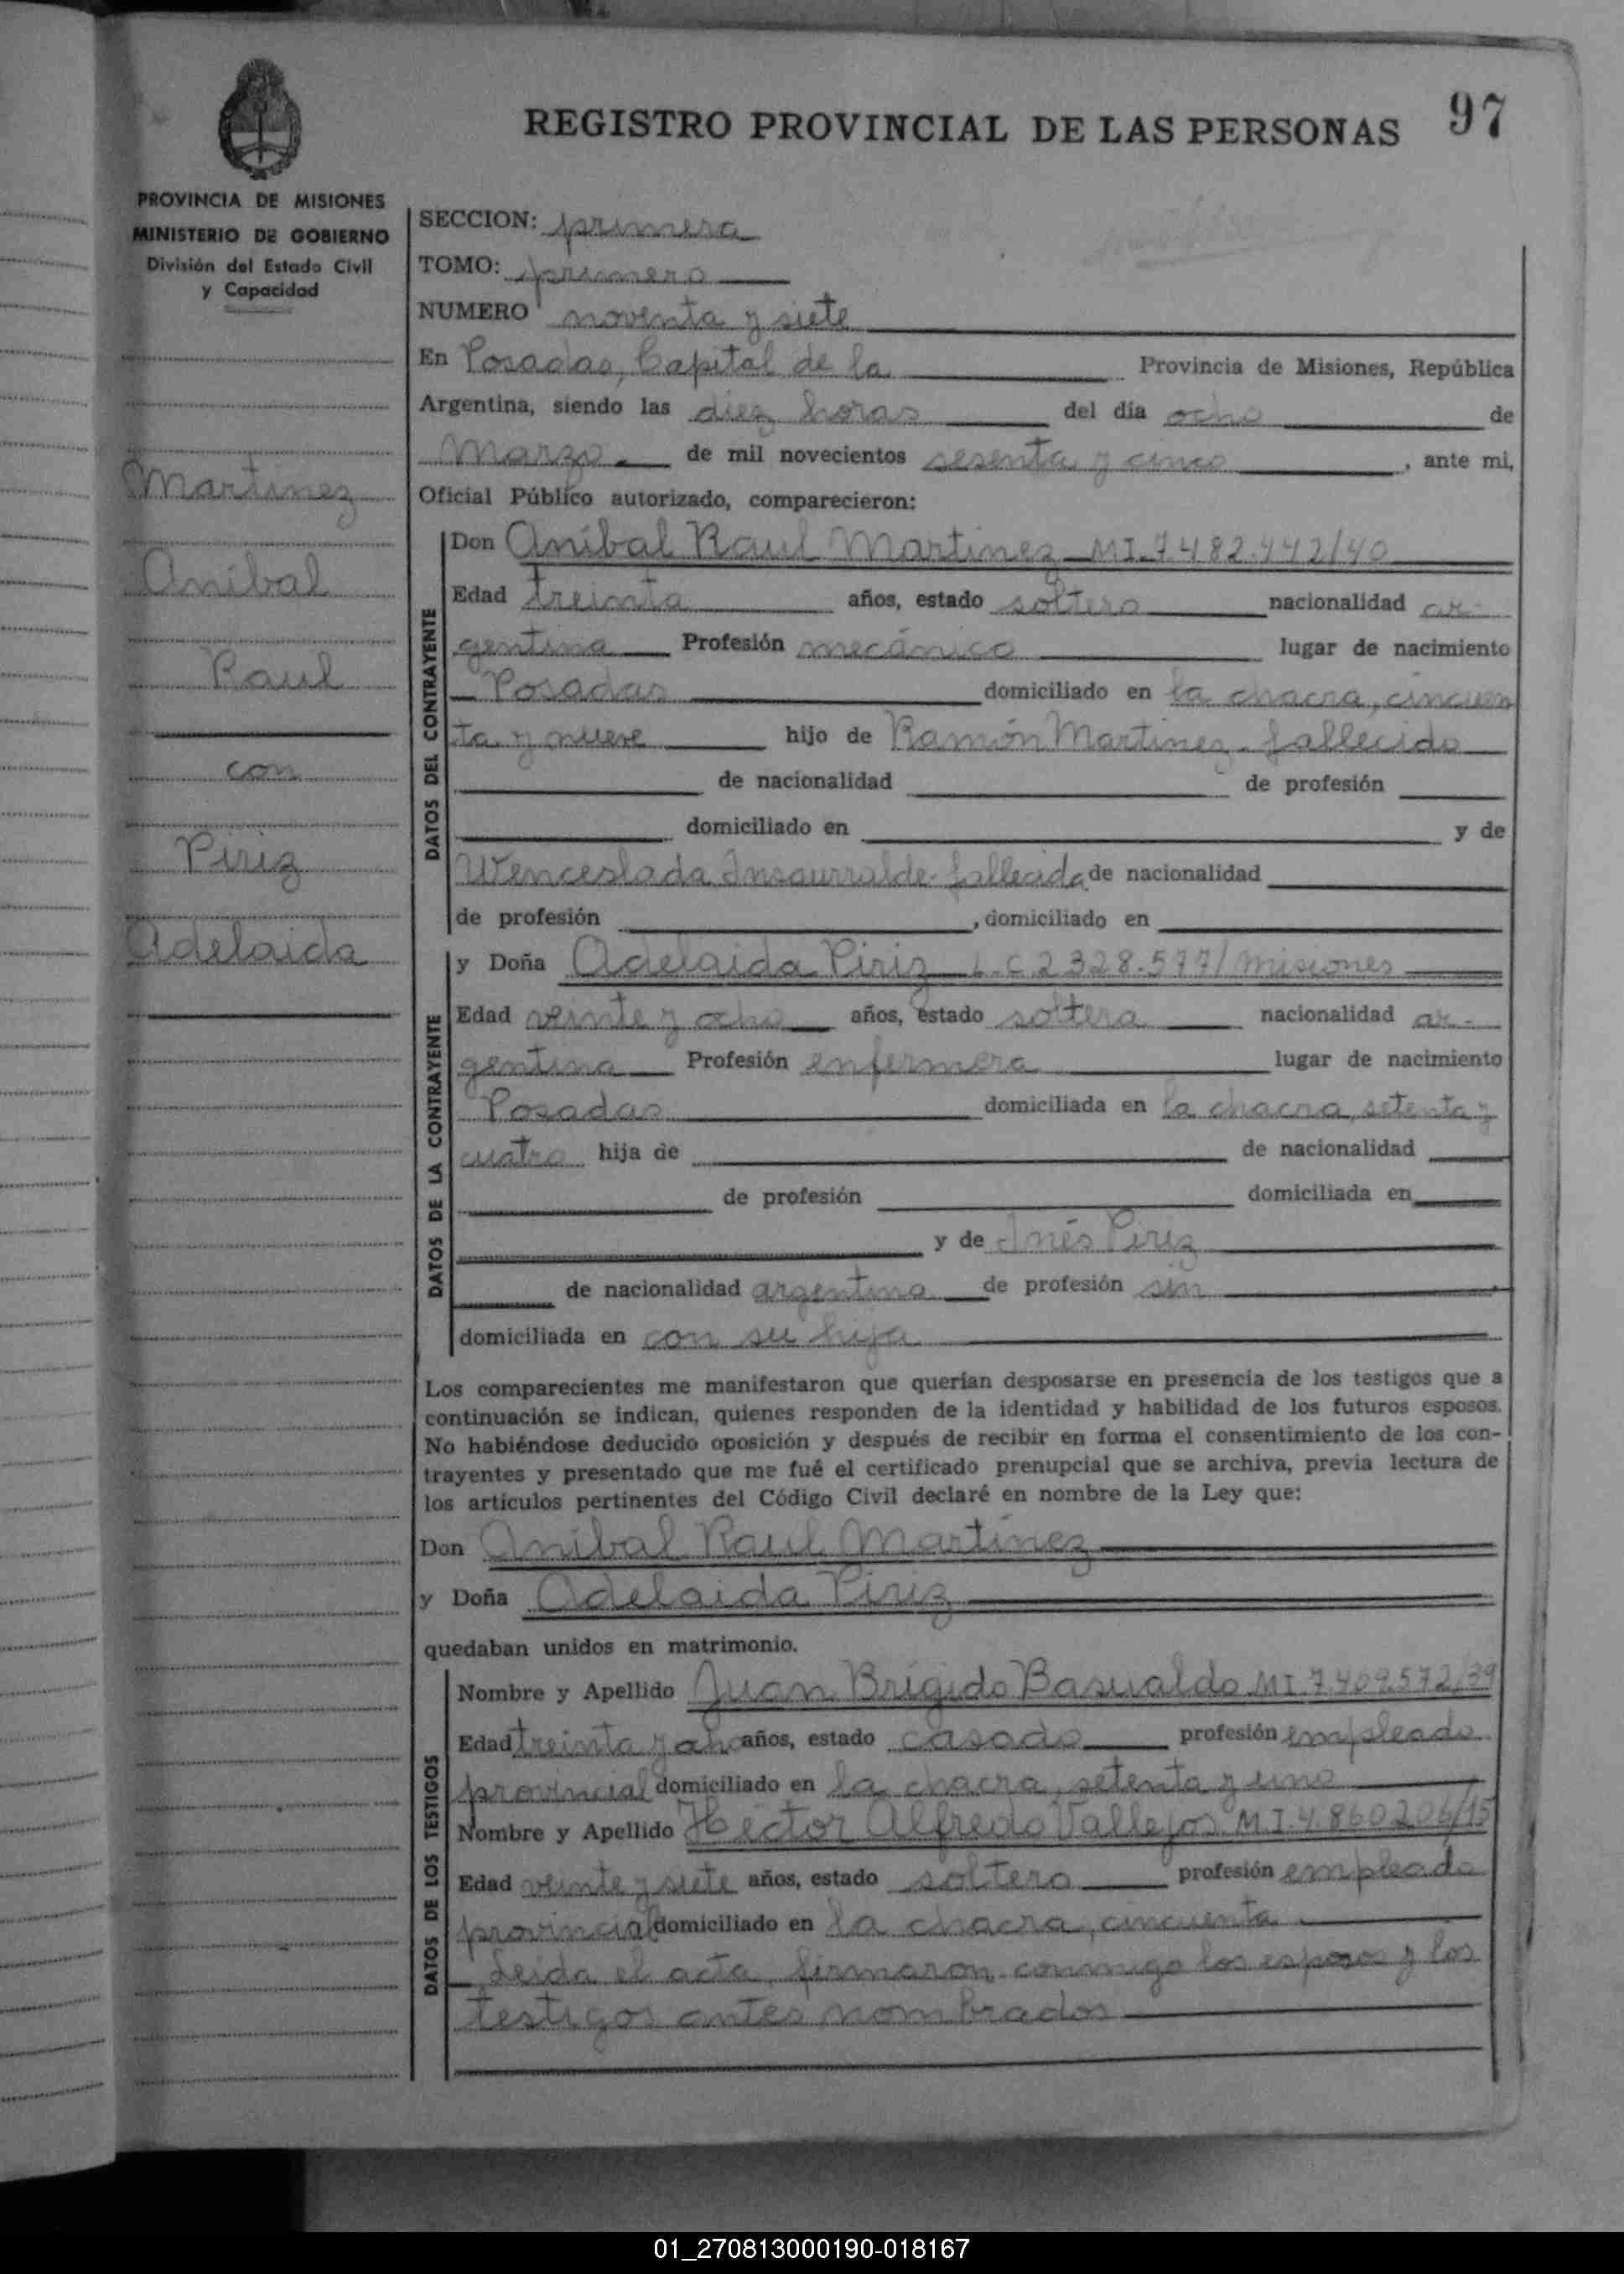 REGISTRO PROVINCIAL DE LAS PERSONAS 97
PROVINCIA DE MISIONES
MINISTERIO DE GOBIERNO
División del Estado Civil
y Capacidad
Martinez
Anibal
Raul
con
Piriz
Adelaida
SECCION: primera
TOMO: primero
NUMERO noventa y siete
En Posadas, Capital de la Provincia de Misiones, República
Argentina, siendo las diez horas del día ocho de
Marzo de mil novecientos sesenta y cinco, ante mi,
Oficial Público autorizado, comparecieron:
DATOS DEL CONTRAYENTE
Don Anibal Raul Martinez MI.7.482.442/40
Edad treinta años, estado soltero nacionalidad ar-
gentina Profesión mecánico lugar de nacimiento
Posadas domiciliado en la chacra, cincuen
ta y nueve hijo de Ramón Martinez - fallecido
de nacionalidad de profesión
domiciliado en y de
Wenceslada Insaurralde - fallecida de nacionalidad
de profesión , domiciliado en
DATOS DE LA CONTRAYENTE
y Doña Adelaida Piriz L.C 2.328.577/Misiones
Edad veinte y ocho años, estado soltera nacionalidad ar-
gentina Profesión enfermera lugar de nacimiento
Posadas domiciliada en la chacra, setenta y
cuatro hija de de nacionalidad
de profesión domiciliada en
y de Inés Piriz
de nacionalidad argentina de profesión sin
domiciliada en con su hija
Los comparecientes me manifestaron que querían desposarse en presencia de los testigos que a
continuación se indican, quienes responden de la identidad y habilidad de los futuros esposos.
No habiéndose deducido oposición y después de recibir en forma el consentimiento de los con-
trayentes y presentado que me fué el certificado prenupcial que se archiva, previa lectura de
los artículos pertinentes del Código Civil declaré en nombre de la Ley que:
Don Anibal Raul Martinez
y Doña Adelaida Piriz
quedaban unidos en matrimonio.
DATOS DE LOS TESTIGOS
Nombre y Apellido Juan Brigido Basualdo MI.7.409.572/39
Edad treinta y años, estado casado profesión empleado
provincial domiciliado en la chacra, setenta y uno
Nombre y Apellido Héctor Alfredo Vallejos M.I.4.860.206/15
Edad veinte y siete años, estado soltero profesión empleado
provincial domiciliado en la chacra, cincuenta
Leida el acta, firmaron conmigo los esposos y los
testigos antes nombrados
01_270813000190-018167